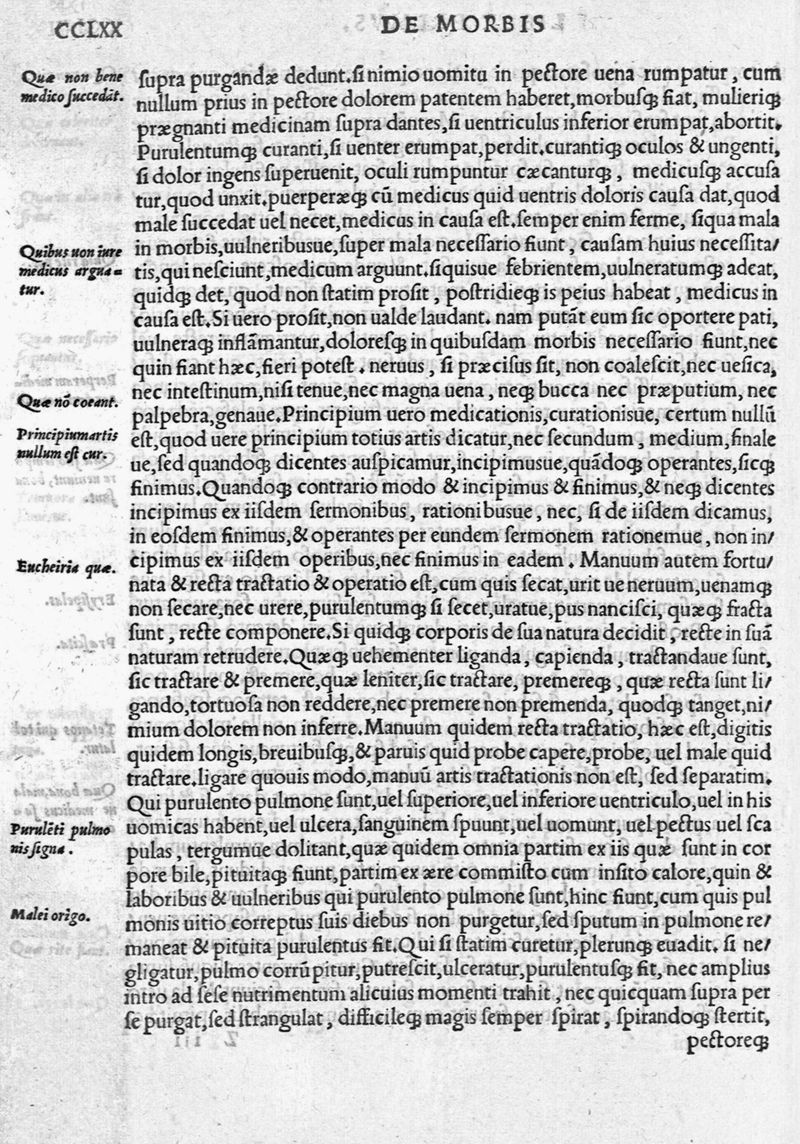 CCLXX
DE MORBIS
Quæ non bene
medico ſuccedāt.
ſupra purgandæ dedunt.ſi nimio uomitu in pectore uena rumpatur, cum
nullum prius in pectore dolorem patentem haberet,morbuſqꝫ fiat, mulieriqꝫ
prægnanti medicinam ſupra dantes,ſi uentriculus inferior erumpat,abortit.
Purulentumqꝫ curanti,ſi uenter erumpat,perdit.curantiqꝫ oculos & ungenti,
ſi dolor ingens ſuperuenit, oculi rumpuntur cæcanturqꝫ, medicuſqꝫ accuſa
tur,quod unxit.puerperæqꝫ cū medicus quid uentris doloris cauſa dat,quod
male ſuccedat uel necet,medicus in cauſa eſt.ſemper enim ferme, ſiqua mala
Quibus uon iure
medicus argua=
tur.
in morbis,uulneribusue,ſuper mala neceſſario fiunt, cauſam huius neceſſita/
tis,qui neſciunt,medicum arguunt.ſiquisue febrientem,uulneratumqꝫ adeat,
quidqꝫ det, quod non ſtatim proſit, poſtridieqꝫ is peius habeat, medicus in
cauſa eſt.Si uero proſit,non ualde laudant. nam putāt eum ſic oportere pati,
uulneraqꝫ inflāmantur,doloreſqꝫ in quibuſdam morbis neceſſario fiunt,nec
quin fiant hæc,fieri poteſt. neruus, ſi præciſus ſit, non coaleſcit,nec ueſica,
nec inteſtinum,niſi tenue,nec magna uena, neqꝫ bucca nec præputium, nec
Quæ nō coeant.
palpebra,genaue.Principium uero medicationis,curationisue, certum nullū
Principium artis
nullum eſt cur.
eſt,quod uere principium totius artis dicatur,nec ſecundum, medium,finale
ue,ſed quandoqꝫ dicentes auſpicamur,incipimusue,quādoqꝫ operantes,ſicqꝫ
finimus.Quandoqꝫ contrario modo & incipimus & finimus,& neqꝫ dicentes
incipimus ex iiſdem ſermonibus, rationibusue, nec, ſi de iiſdem dicamus,
in eoſdem finimus,& operantes per eundem ſermonem rationemue, non in/
Eucheiria quæ.
cipimus ex iiſdem operibus,nec finimus in eadem. Manuum autem fortu/
nata & recta tractatio & operatio eſt,cum quis ſecat,urit ue neruum,uenamqꝫ
non ſecare,nec urere,purulentumqꝫ ſi ſecet,uratue,pus nanciſci, quæqꝫ fracta
ſunt, recte componere.Si quidqꝫ corporis de ſua natura decidit, recte in ſuā
naturam retrudere.Quæqꝫ uehementer liganda, capienda, tractandaue ſunt,
ſic tractare & premere,quæ leniter,ſic tractare, premereqꝫ, quæ recta ſunt li/
gando,tortuoſa non reddere,nec premere non premenda, quodqꝫ tanget,ni/
mium dolorem non inferre.Manuum quidem recta tractatio, hæc eſt,digitis
quidem longis,breuibuſqꝫ,& paruis quid probe capere,probe, uel male quid
tractare.ligare quouis modo,manuū artis tractationis non eſt, ſed ſeparatim.
Qui purulento pulmone ſunt,uel ſuperiore,uel inferiore uentriculo,uel in his
Purulēti pulmo
nis ſigna.
uomicas habent,uel ulcera,ſanguinem ſpuunt,uel uomunt, uel pectus uel ſca
pulas, tergumue dolitant,quæ quidem omnia partim ex iis quæ ſunt in cor
pore bile,pituitaqꝫ fiunt,partim ex ære commiſto cum inſito calore,quin &
laboribus & uulneribus qui purulento pulmone ſunt,hinc fiunt,cum quis pul
Malei origo.
monis uitio correptus ſuis diebus non purgetur,ſed ſputum in pulmone re/
maneat & pituita purulentus fit.Qui ſi ſtatim curetur,plerunqꝫ euadit. ſi ne/
gligatur,pulmo corrūpitur,putreſcit,ulceratur,purulentuſqꝫ fit, nec amplius
intro ad ſeſe nutrimentum alicuius momenti trahit, nec quicquam ſupra per
ſe purgat,ſed ſtrangulat, difficileqꝫ magis ſemper ſpirat, ſpirandoqꝫ ſtertit,
pectoreqꝫ